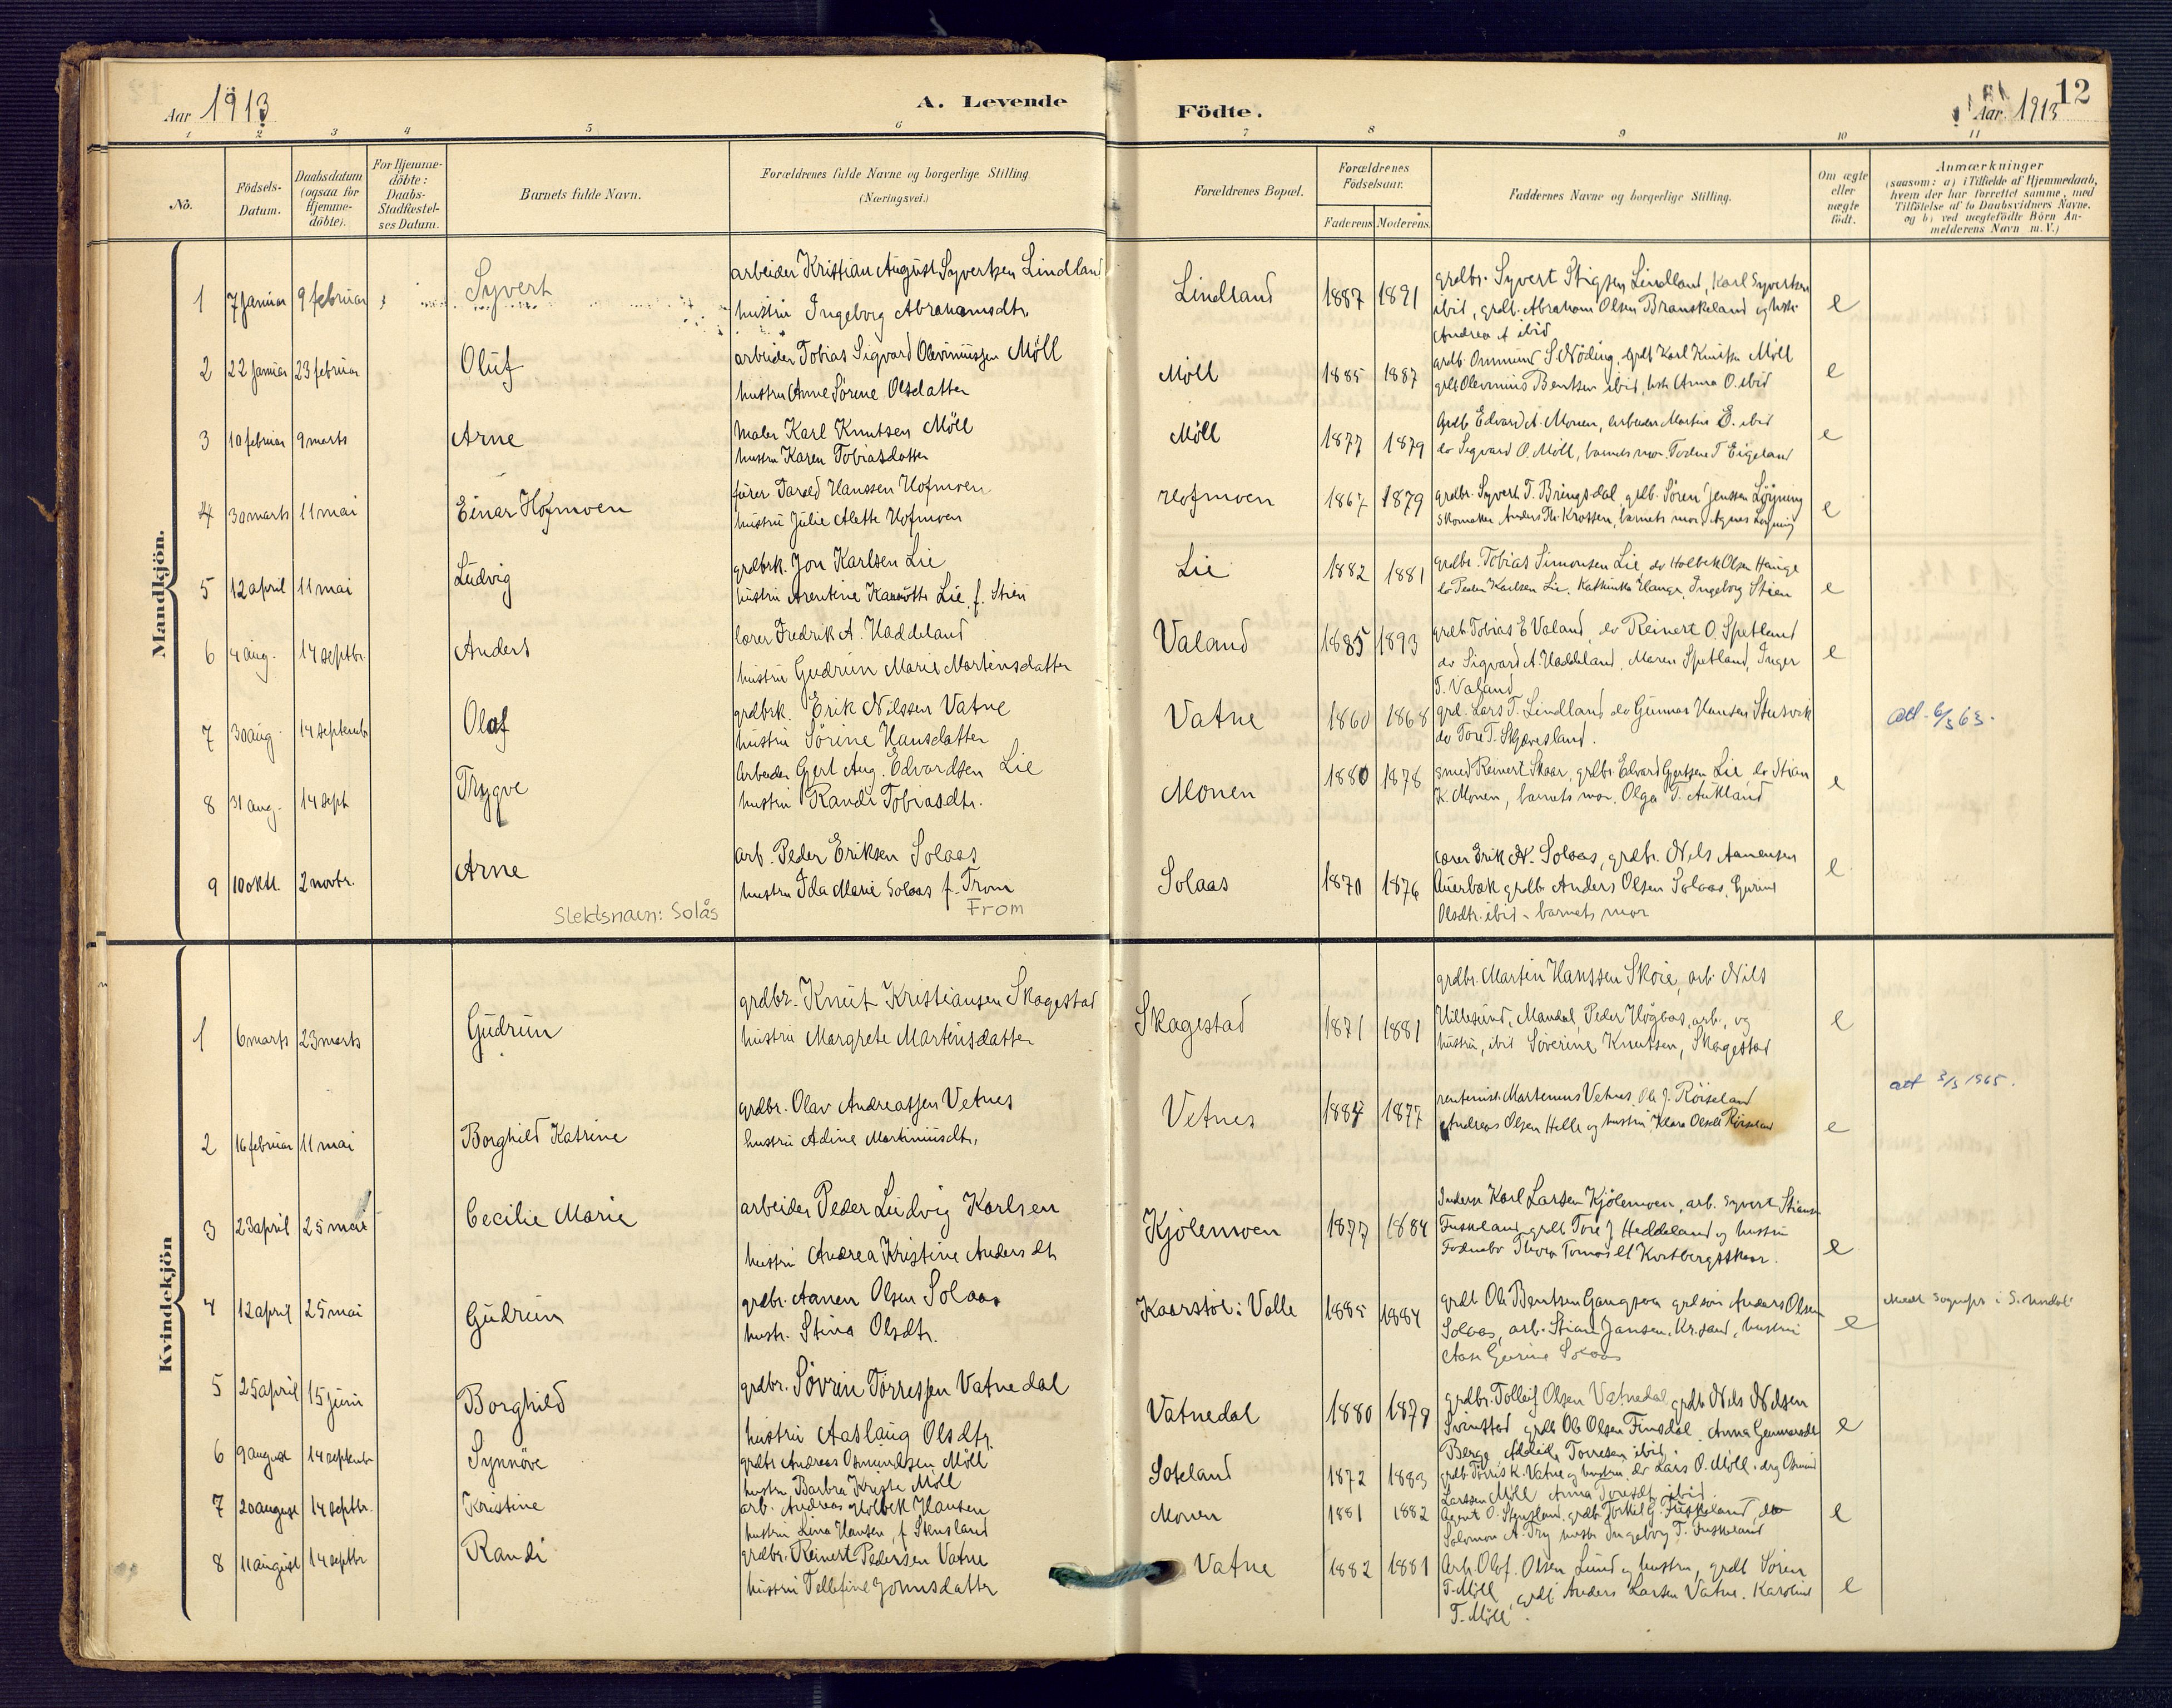 Aar 1913
A. Levende
Födte.
Aar 1913
12
1 2 3 4 5 6 7 8 9 10 11
No.
Födsels-
Datum.
Daabsdatum
(ogsaa for
Hjemme-
döbte).
For Hjemme-
döbte:
Daabs-
Stadfæstel-
ses Datum.
Barnets fulde Navn.
Forældrenes fulde Navne og borgerlige Stilling
(Næringsvei.)
Forældrenes Bopæl.
Forældrenes
Födselsaar.
Faderens Moderens
Faddernes Navne og borgerlige Stilling.
Om ægte
eller
uægte
födt.
Anmærkninger
(saasom: a) i Tilfælde af Hjemmedaab,
hvem der har forrettet samme, med
Tilföielse af to Daabsvidners Navne,
og b) ved uægtefödte Börn An-
melderens Navn m. V.)
Mandkjön.
1 7 januar 9 februar Syvert
arbeider Kristian August Syvertsen Lindland
hustru Ingeborg Abrahamsdtr
Lindland 1887 1891
grdbr. Syvert Stigsen Lindland, Karl Syvertsen
ibid, grdb. Abraham Olsen Branskeland og hstr
Andrea A ibid
e
2 22 januar 23 februar Oluf
arbeider Tobias Sigvard Olevinussen Möll
hustru Anne Sörine Olsdatter
Möll 1885 1887
grdb. Ommund S. Nöding, grdb Karl Knutsen Möll
grdb Olevinus Bentsen ibid, hstr Anna O. ibid
e
3 10 februar 9 marts Arne
Maler Karl Knutsen Möll
hustru Karen Tobiasdatter
Möll 1877 1879
Grdb Edvard A. Monen, arbeider Martin E. ibid
do Sigvard O. Möll, barnets mor, Todne T Eigeland
e
4 30 marts 11 mai Einar Hofmoen
förer Tarald Hanssen Hofmoen
hustru Julie Alette Hofmoen
Hofmoen 1867 1879
grdbr. Syvert T. Bringsdal grdb. Sören Jenssen Löyning
Skomaker Anders Th. Krossen, barnets mor, Agnes Löyning
e
5 12 april 11 mai Ludvig
grdbrk. Jon Karlsen Lie
hustru Arentine Lie, f. Stien
Lie 1882 1881
grdbr. Tobias Simonsen Lie, do Holbek Olsen Heinge
do Peder Karlsen Lie, Kathinka Heinge, Ingeborg Stien
e
6 4 aug. 14 septbr. Anders
lærer Fredrik A. Haddeland
hustru Gudrun Marie Martinsdatter
Valand 1885 1893
grdb. Tobias E Valand, do Reinert O. Spetland
do Sigvard A. Haddeland, Maren Spetland, Inger
T. Valand
e
7 30 aug. 14 septemb Olaf
grdbrk. Erik Nilssen Vatne
hustru Sörine Hansdatter
Vatne 1860 1868
grd. Lars T. Lindland, do Gunnar Hansen Stusvik
do Tore T. Skjævesland.
att. 6/3 63.
8 31 aug. 14 sept Trygve
Arbeider Gert Aug. Edvardsen Lie
hustru Randi Tobiasdtr.
Monen 1880 1878
smed Reinert Skaar, grdbr. Edvard Gjertsen Lie do Stian
K. Monen, barnets mor, Olga T. Aukland
e
9 10 okt. 2 novbr. Arne
Slektsnavn: Solås
arb. Peder Eriksen Solaas
hustru Ida Marie Solaas f. Trom
From
Solaas 1870 1876
lærer Erik N. Solaas, grdb. Nils Aanensen
Auerbak grdb Anders Olsen Solaas, Gurine
Olsdtr. ibid - barnets mor
e
Kvindekjön
1 6 marts 23 marts Gudrun
grdbr. Knut Kristiansen Skagestad
hustru Margrete Martinsdatter
Skagestad 1871 1881
grdbr. Martin Hanssen Skoie, arb Nils
Hillesund, Mandal, Peder Högaas, arb, og
hustru, ibid Severine Knutsen, Skagestad
e
2 16 februar 11 mai Borghild Katrine
grdbr. Olav Andreassen Vetnes
hustru Adine Martinusdtr,
Vetnes 1884 1877
rentenist Martenius Vetnes, Ole J. Röiseland
Andreas Olsen Helle og hustru, Klara Olsdt Röiseland
e
att 3/3 1965.
3 23 april 25 mai Cecilie Marie
arbeider Peder Ludvig Karlsen
hustru Andrea Kristine Andersdt
Kjölemoen 1877 1884
Inderst Karl Larsen Kjölemoen, arb. Syvert Stiansen
Fuskeland, grdb Tore J Heddeland og hustru
Thora Tomasdt Kortbergsskaar.
e
4 12 april 25 mai Gudrun
grdbr. Aanen Olsen Solaas
hustr. Stina Olsdtr.
Kaarstöl i Valle 1885 1884
grdb Ole Bentsen Gangsaa grdsön Anders Olsen
Solaas, arb. Stian Jansen, Kr.sand, hustru
Aase Gurine Solaas
e
sognepr i S. Undal
5 25 april 15 juni Borghild
grdbr. Sövrin Törressen Vatnedal
hustru Aaslaug Olsdtr.
Vatnedal 1880 1879
grdbr. Tolleif Olsen Vatnedal, grdb Nils Nilsen
Svinstad grdb Ole Olsen Finsdal, Anna Gunnarsdt
Berge, Torresen ibid.
e
6 9 august 14 septembr Synnöve
grdbr Andreas Osmundsen Möll
hustru Barbra Kristi Möll
Soteland 1872 1883
grdb Törris K. Vatne og hustru, do Lars O. Möll, drg Osmund
Larssen Möll Anna Toresdt ibid
7 20 august 14 septbr. Kristine
arb. Andreas Holbek Hansen
hustru Lina Hansen, f Stensland
Monen 1881 1882
Agent O. Stensland, grdb Torkel G. Fuskeland, do
Solomon A. Try hustr Ingeborg T. Fuskeland
e
8 11 august 14 septbr Randi
grdbr. Reinert Pedersen Vatne
hustru Tellefine Jonnsdatter
Vatne 1882 1881
Arb. Olof. Olsen Lund og hustru, grdb Sören
T. Möll, grdb. Anders Larsen Vatne. Karoline
T. Möll.
e